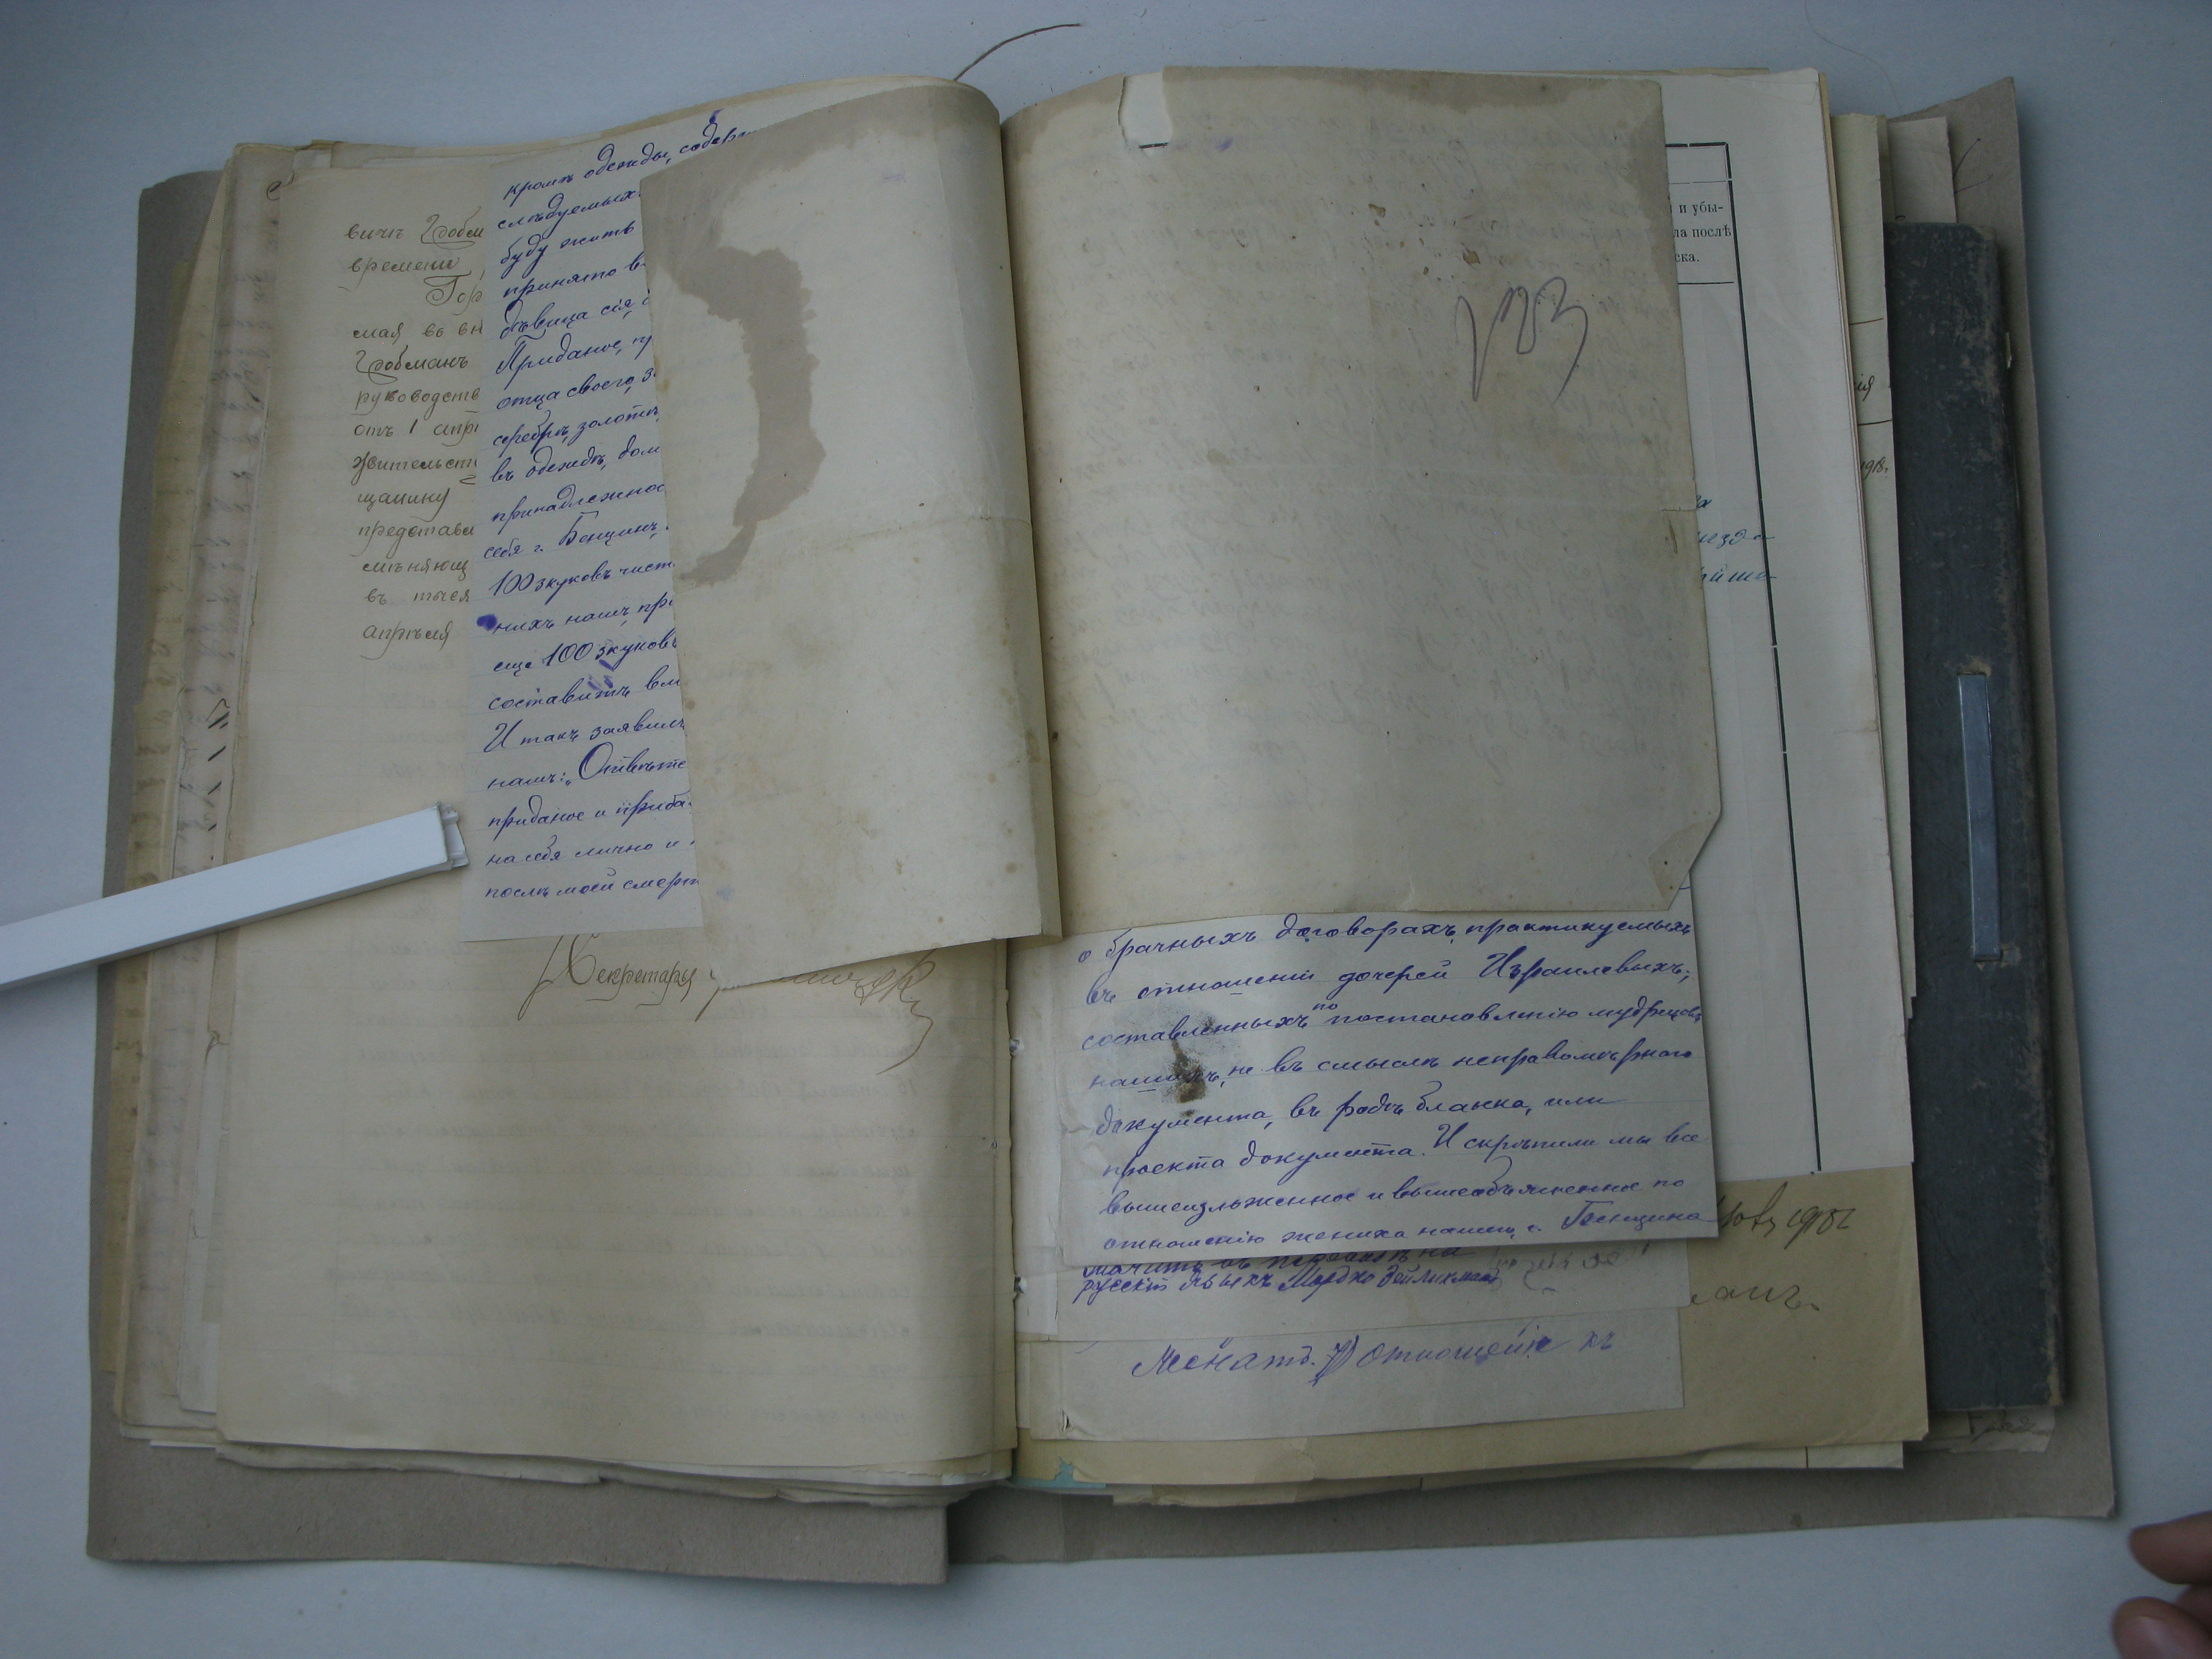 вичъ Гробм
времени
Гор
мая въ вн
Гробманъ
руководств
отъ 1 апрѣ
жительств
щанину
представи
мѣняющ
въ тыся
апрѣля
Секретарь
кромѣ одежды, содерж
слѣдуемыхъ
буду жить
принято в
дѣвица сія
Приданое, пр
отца своего, з
серебрѣ, золотѣ,
въ одеждѣ, дом
принадлежнос
себя г. Бенціинъ,
100 зкуковъ чист
нихъ нашъ пр
еще 100 зкуковъ
составитъ вм
И такъ заявилъ
нашъ: „Отвѣтс
приданое и приба
на себя лично и
послѣ моей смерт
123
и убы-
ла послѣ
ска.
ія
1918.
о брачныхъ договорахъ, практикуемыхъ
въ отношеніи дочерей Израилевыхъ,
составленныхъ по постановленію мудрецовъ
нашихъ, не въ смыслѣ неправомѣрнаго
документа, въ родѣ бланка, или
проекта документа. И скрѣпили мы все
вышеизложенное и вышеобъясненное по
отношенію жениха нашего, г. Бенціина
значитъ въ переводѣ на
русскій языкъ Мордко Зейликманъ
Женатъ. 7) отношеніе къ